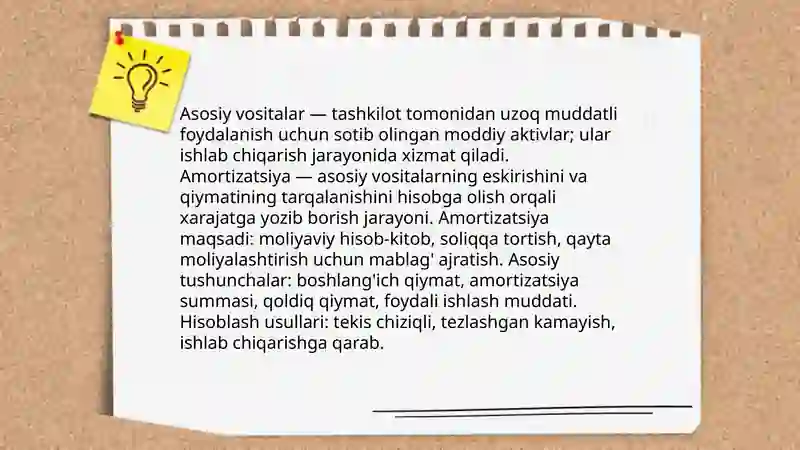 Asosiy vositalar — tashkilot tomonidan uzoq muddatli
foydalanish uchun sotib olingan moddiy aktivlar; ular
ishlab chiqarish jarayonida xizmat qiladi.
Amortizatsiya — asosiy vositalarning eskirishini va
qiymatining tarqalanishini hisobga olish orqali
xarajatga yozib borish jarayoni. Amortizatsiya
maqsadi: moliyaviy hisob-kitob, soliqqa tortish, qayta
moliyalashtirish uchun mablag' ajratish. Asosiy
tushunchalar: boshlang'ich qiymat, amortizatsiya
summasi, qoldiq qiymat, foydali ishlash muddati.
Hisoblash usullari: tekis chiziqli, tezlashgan kamayish,
ishlab chiqarishga qarab.